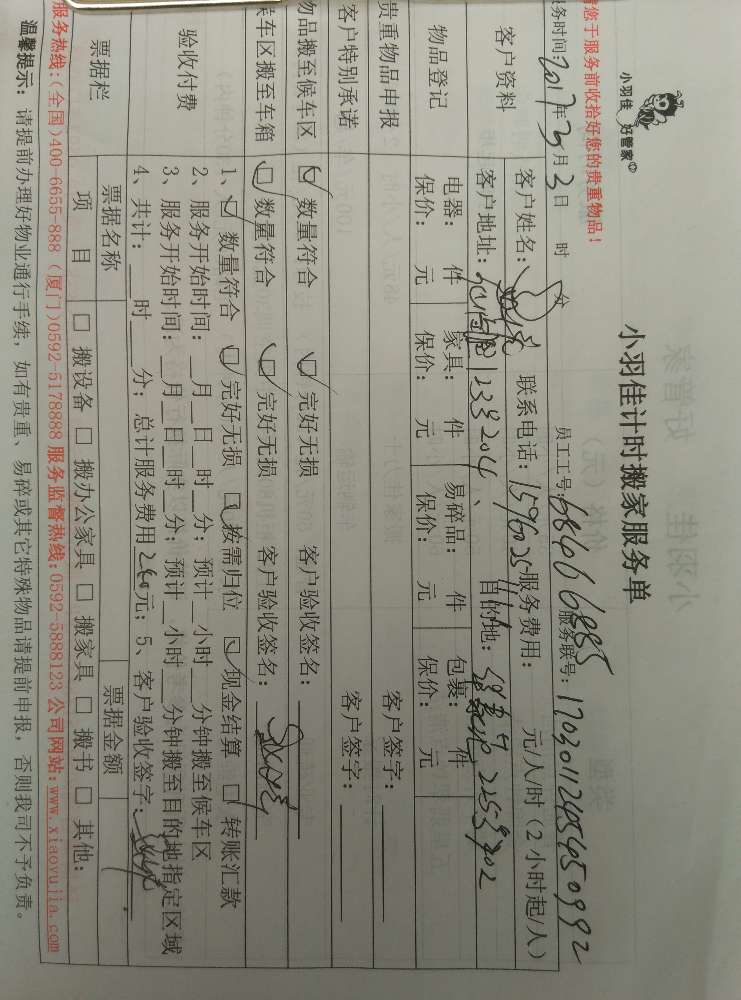 小羽佳 好管家
小羽佳计时搬家服务单
请您于服务前收拾好您的贵重物品!
服务时间:2017年3月3日 时 分 员工工号: 服务联号:
客户资料 客户姓名: 联系电话: 服务费用: 元/人/时(2小时起/人)
客户地址: 目的地:
物品登记 电器: 件 家具: 件 易碎品: 件 包裹: 件
保价: 元 保价: 元 保价: 元 保价: 元
贵重物品申报 客户签字:
客户特别承诺 客户签字:
物品搬至候车区 数量符合 完好无损 客户验收签名:
候车区搬至车箱 数量符合 完好无损 客户验收签名:
验收付费 1、数量符合 完好无损 按需归位 现金结算 转账汇款
2、服务开始时间: 月 日 时 分; 预计 小时 分钟搬至候车区
3、服务开始时间: 月 日 时 分; 预计 小时 分钟搬至目的地指定区域
4、共计: 时 分; 总计服务费用 元; 5、客户验收签字:
票据栏 票据名称 票据金额
项 目 搬设备 搬办公家具 搬家具 搬书 其他:
服务热线:(全国)400-6655-888 (厦门)0592-5178888 服务监督热线:0592-5888123 公司网站:www.xiaoyujia.com
温馨提示: 请提前办理好物业通行手续, 如有贵重、易碎或其它特殊物品请提前申报, 否则我司不予负责。